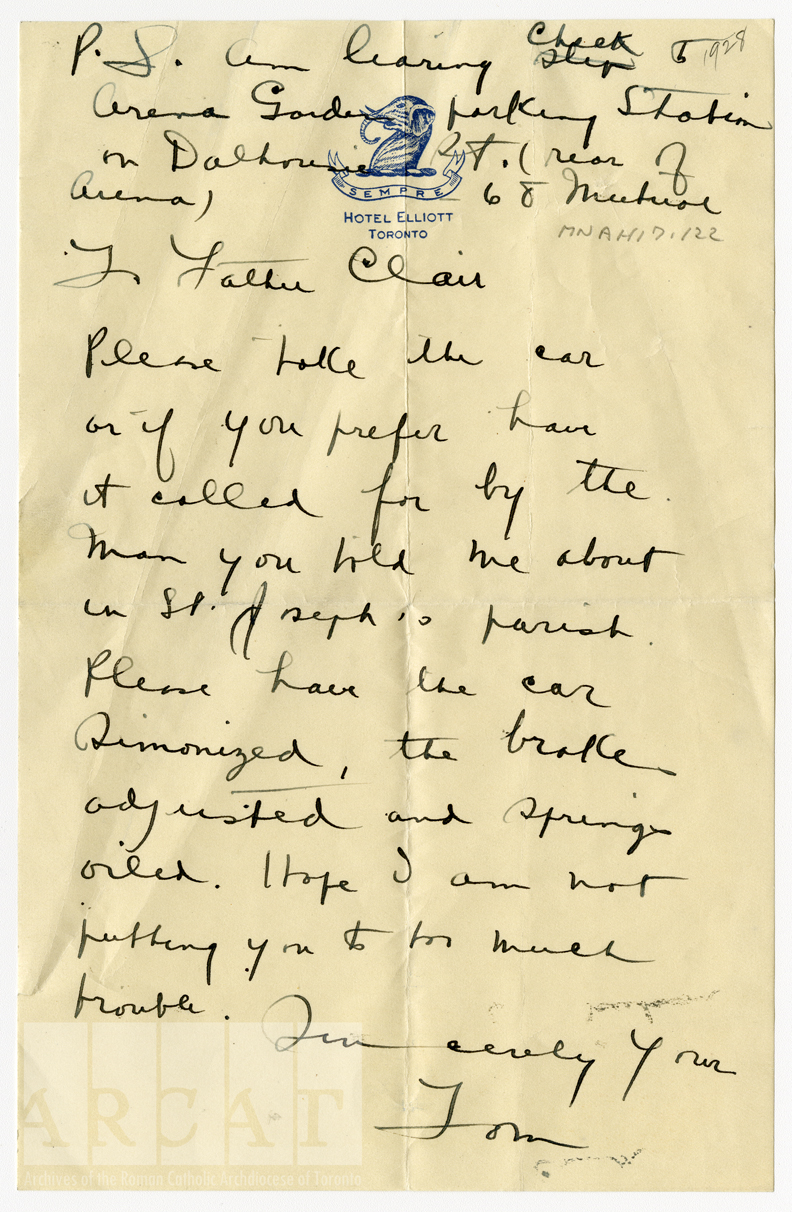 P.S. Am leaving check slip to 1928
Arena Garden parking Station
on Dalhousie St. (rear of
Arena) 68 Mutual
SEMPRE
HOTEL ELLIOTT
TORONTO
MNAH17.122
To Father Clair
Please take the car
or if you prefer have
it called for by the
man you told me about
in St. Joseph's parish.
Please have the car
Simonized, the brake
adjusted and springs
oiled. Hope I am not
putting you to too much
trouble.
Sincerely Your
Tom
ARCAT
Archives of the Roman Catholic Archdiocese of Toronto